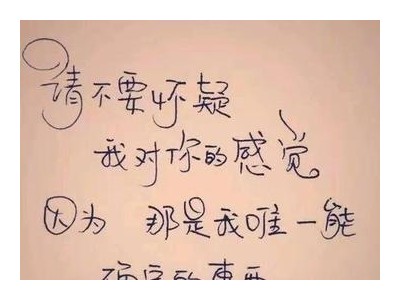 请不要怀疑
我对你的感觉
因为 那是我唯一能
的東西